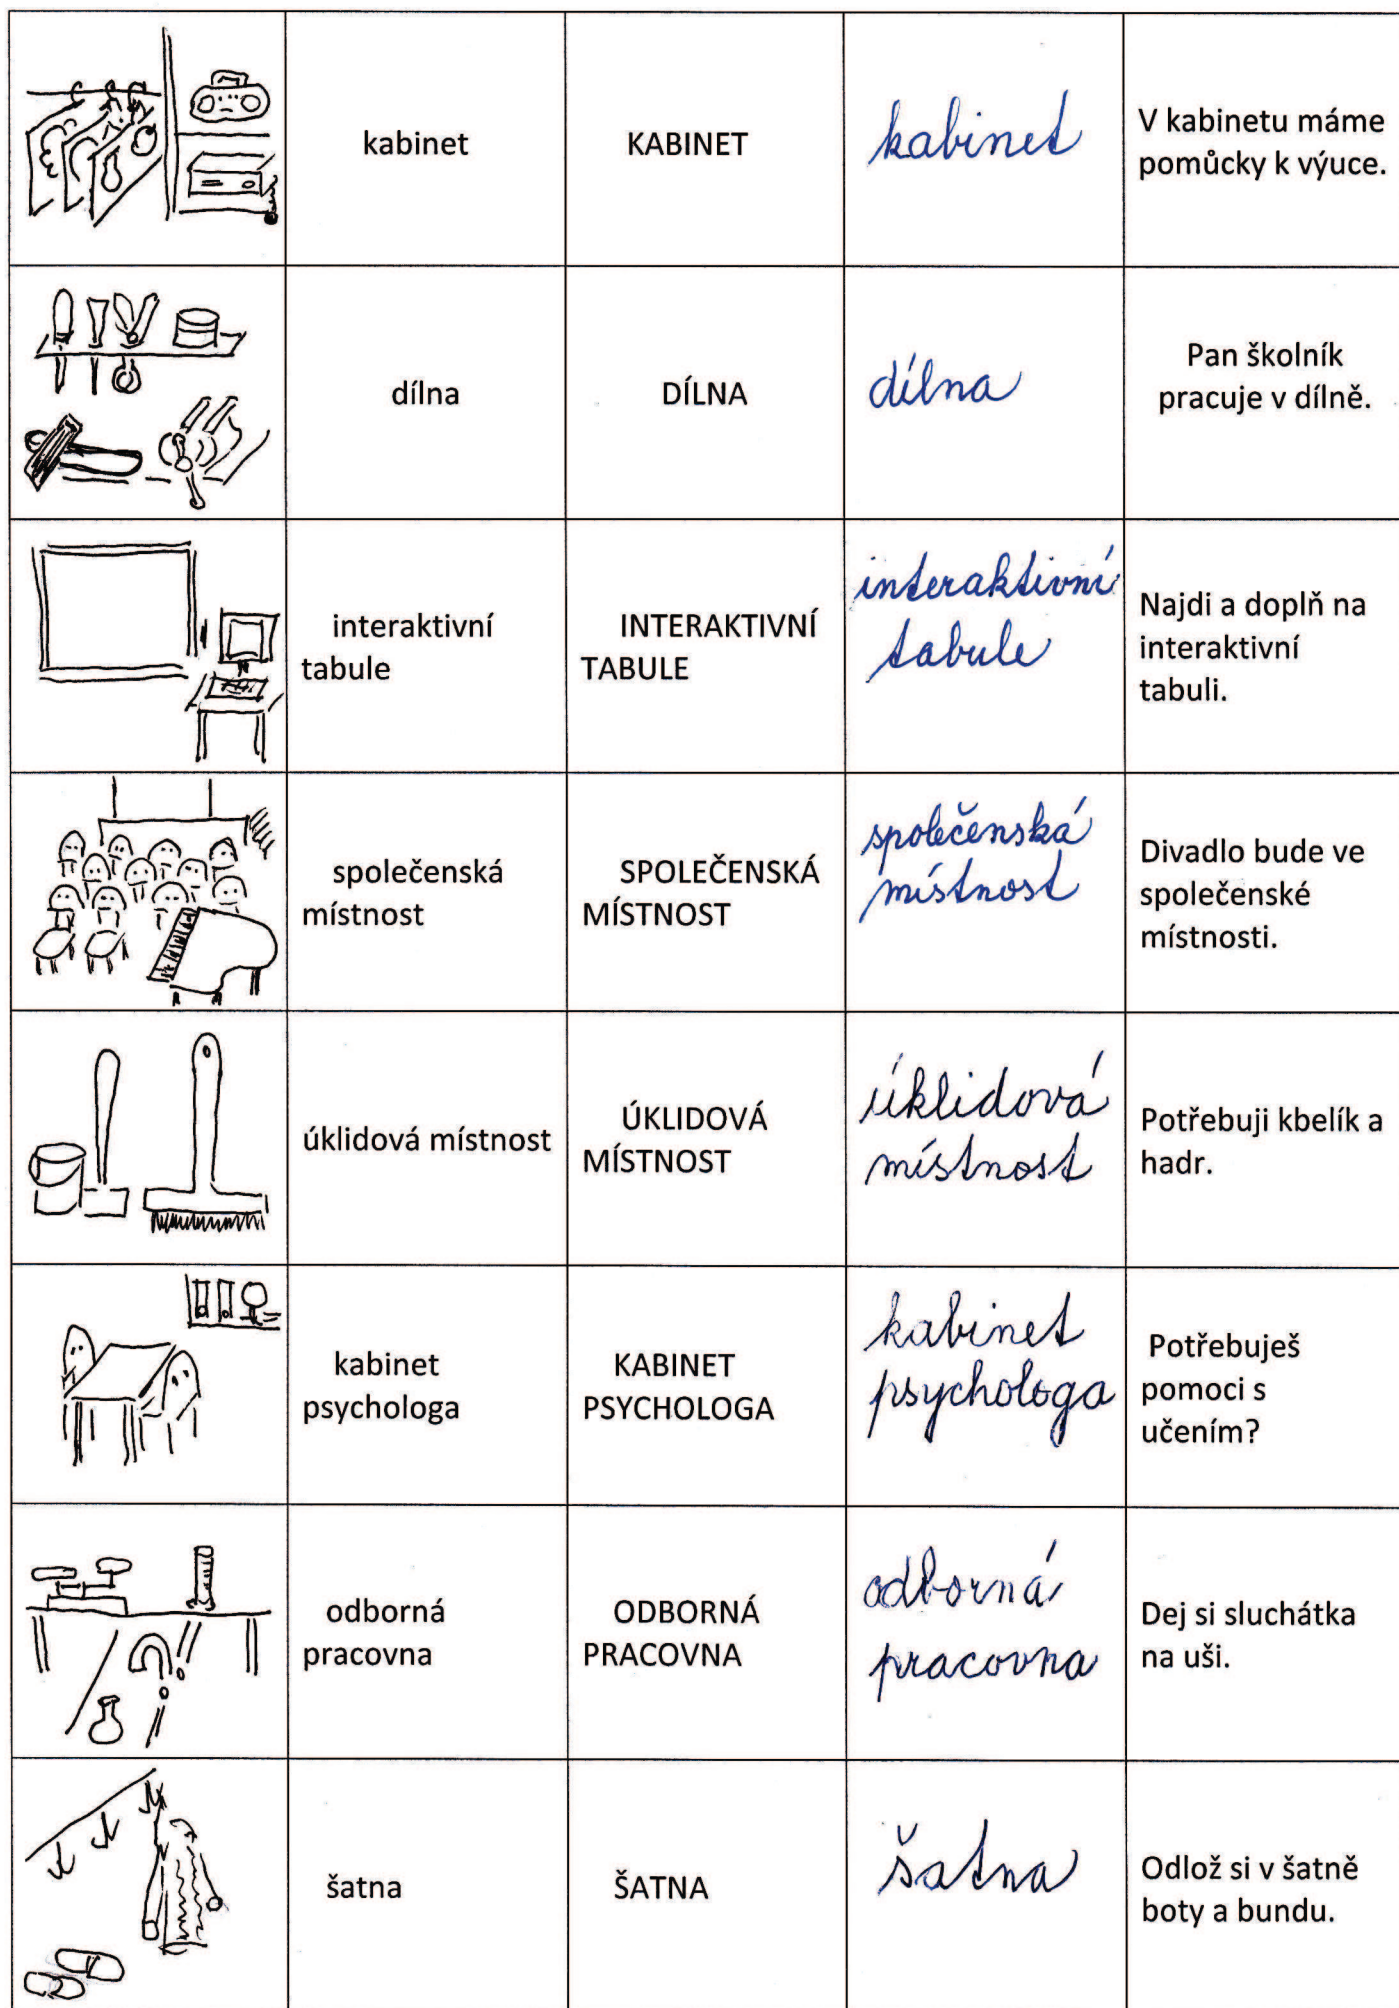 kabinet
KABINET
kabinet
V kabinetu máme
pomůcky k výuce.
dílna
DÍLNA
dílna
Pan školník
pracuje v dílně.
interaktivní
tabule
INTERAKTIVNÍ
TABULE
interaktivní
tabule
Najdi a doplň na
interaktivní
tabuli.
společenská
místnost
SPOLEČENSKÁ
MÍSTNOST
společenská
místnost
Divadlo bude ve
společenské
místnosti.
úklidová místnost
ÚKLIDOVÁ
MÍSTNOST
úklidová
místnost
Potřebuji kbelík a
hadr.
kabinet
psychologa
KABINET
PSYCHOLOGA
kabinet
psychologa
Potřebuješ
pomoci s
učením?
odborná
pracovna
ODBORNÁ
PRACOVNA
odborná
pracovna
Dej si sluchátka
na uši.
šatna
ŠATNA
šatna
Odlož si v šatně
boty a bundu.